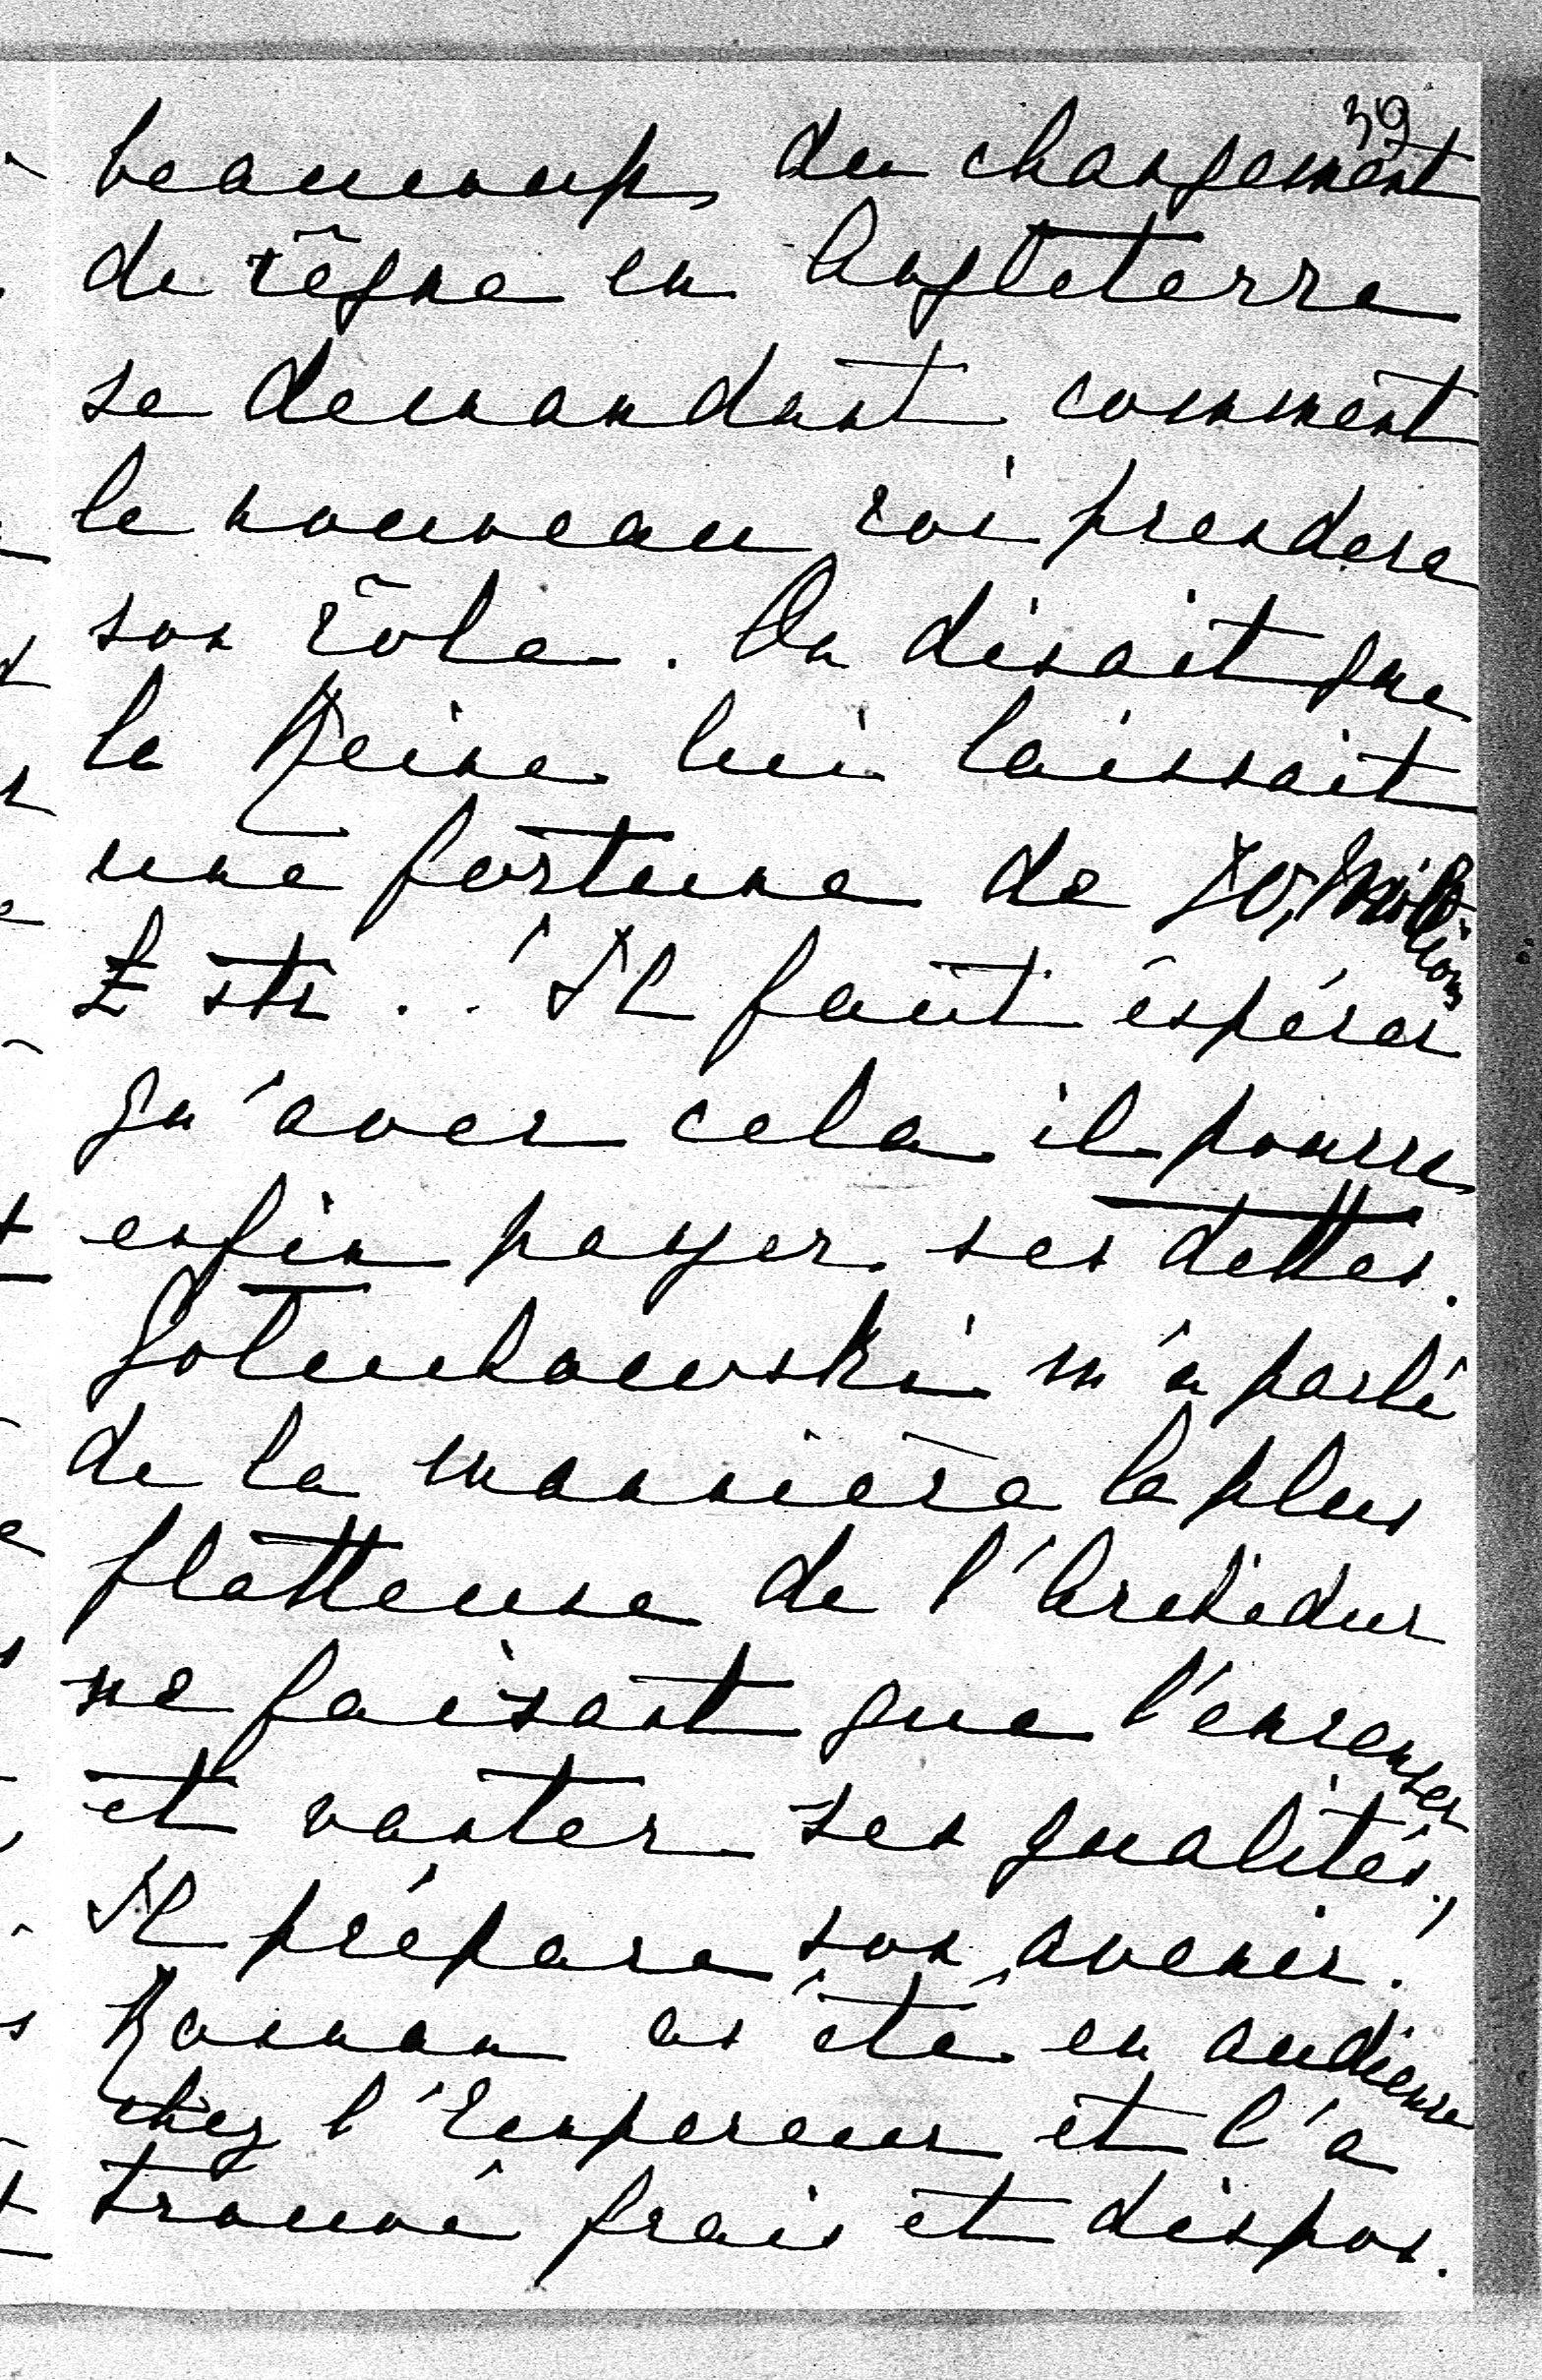 39
beaucoup du changement
de rêgne en Angleterre
se demandant comment
le nouveau roi prendera
son rôle. On disait que
la Reine lui laissait
une fortune de 70, millions
£ str.. Il faut éspérer
qu'avec cela il pourra
enfin payer ses dettes.
Goluchowski m'a parlé
de la mannière la plus
flatteuse de l'Archiduc
ne faisant que l'encenser
et vanter ses qualités,
Il prépare son avenir!
Roman as été en audience
chez l'Empereur et l'a
trouvé frais et dispos.